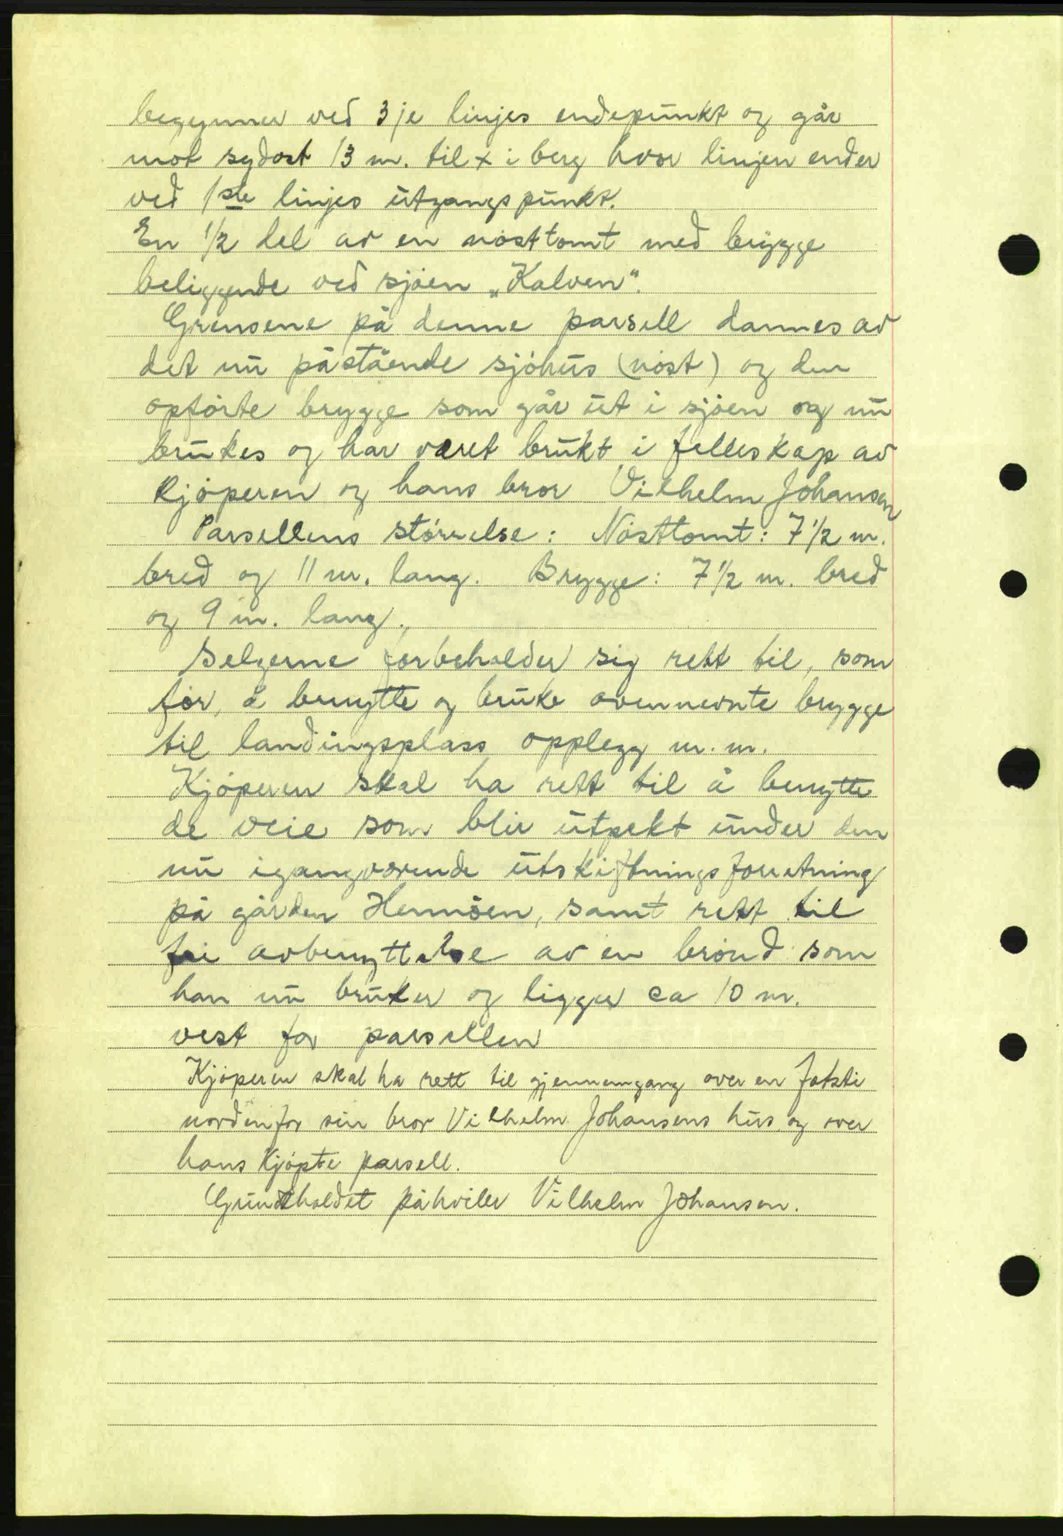 begynner ved 3je linjes endepunkt og går
mot sydost 13 m. til x i berg hvor linjen ender
ved 1ste linjes utgangspunkt.
En 1/2 del av en nøsttomt med brygge
beliggende ved sjøen „Kalven“.
Grensene på denne parsell dannes av
det nu påstående sjøhus (nøst) og den
opførte brygge som går ut i sjøen og nu
brukes og har været brukt i felleskap av
kjøperen og hans bror Vilhelm Johansen
Parsellens størrelse: Nøsttomt: 7 1/2 m.
bred og 11 m. lang. Brygge: 7 1/2 m. bred
og 9 m. lang.
Selgerne forbeholder sig rett til, som
før, å benytte og bruke ovennevnte brygge
til landingsplass opplegg m. m.
Kjøperen skal ha rett til å benytte
de veie som blir utpekt under den
nu igangværende utskiftningsforretning
på gården Hennøen, samt rett til
fri avbenyttelse av en brønd som
han nu bruker og ligger ca 10 m.
vest for parsellen
Kjøperen skal ha rett til gjennemgang over en fotsti
nordenfor sin bror Vilhelm Johansens hus og over
hans kjøpte parsell.
Gjerdeholdet påhviler Vilhelm Johansen.